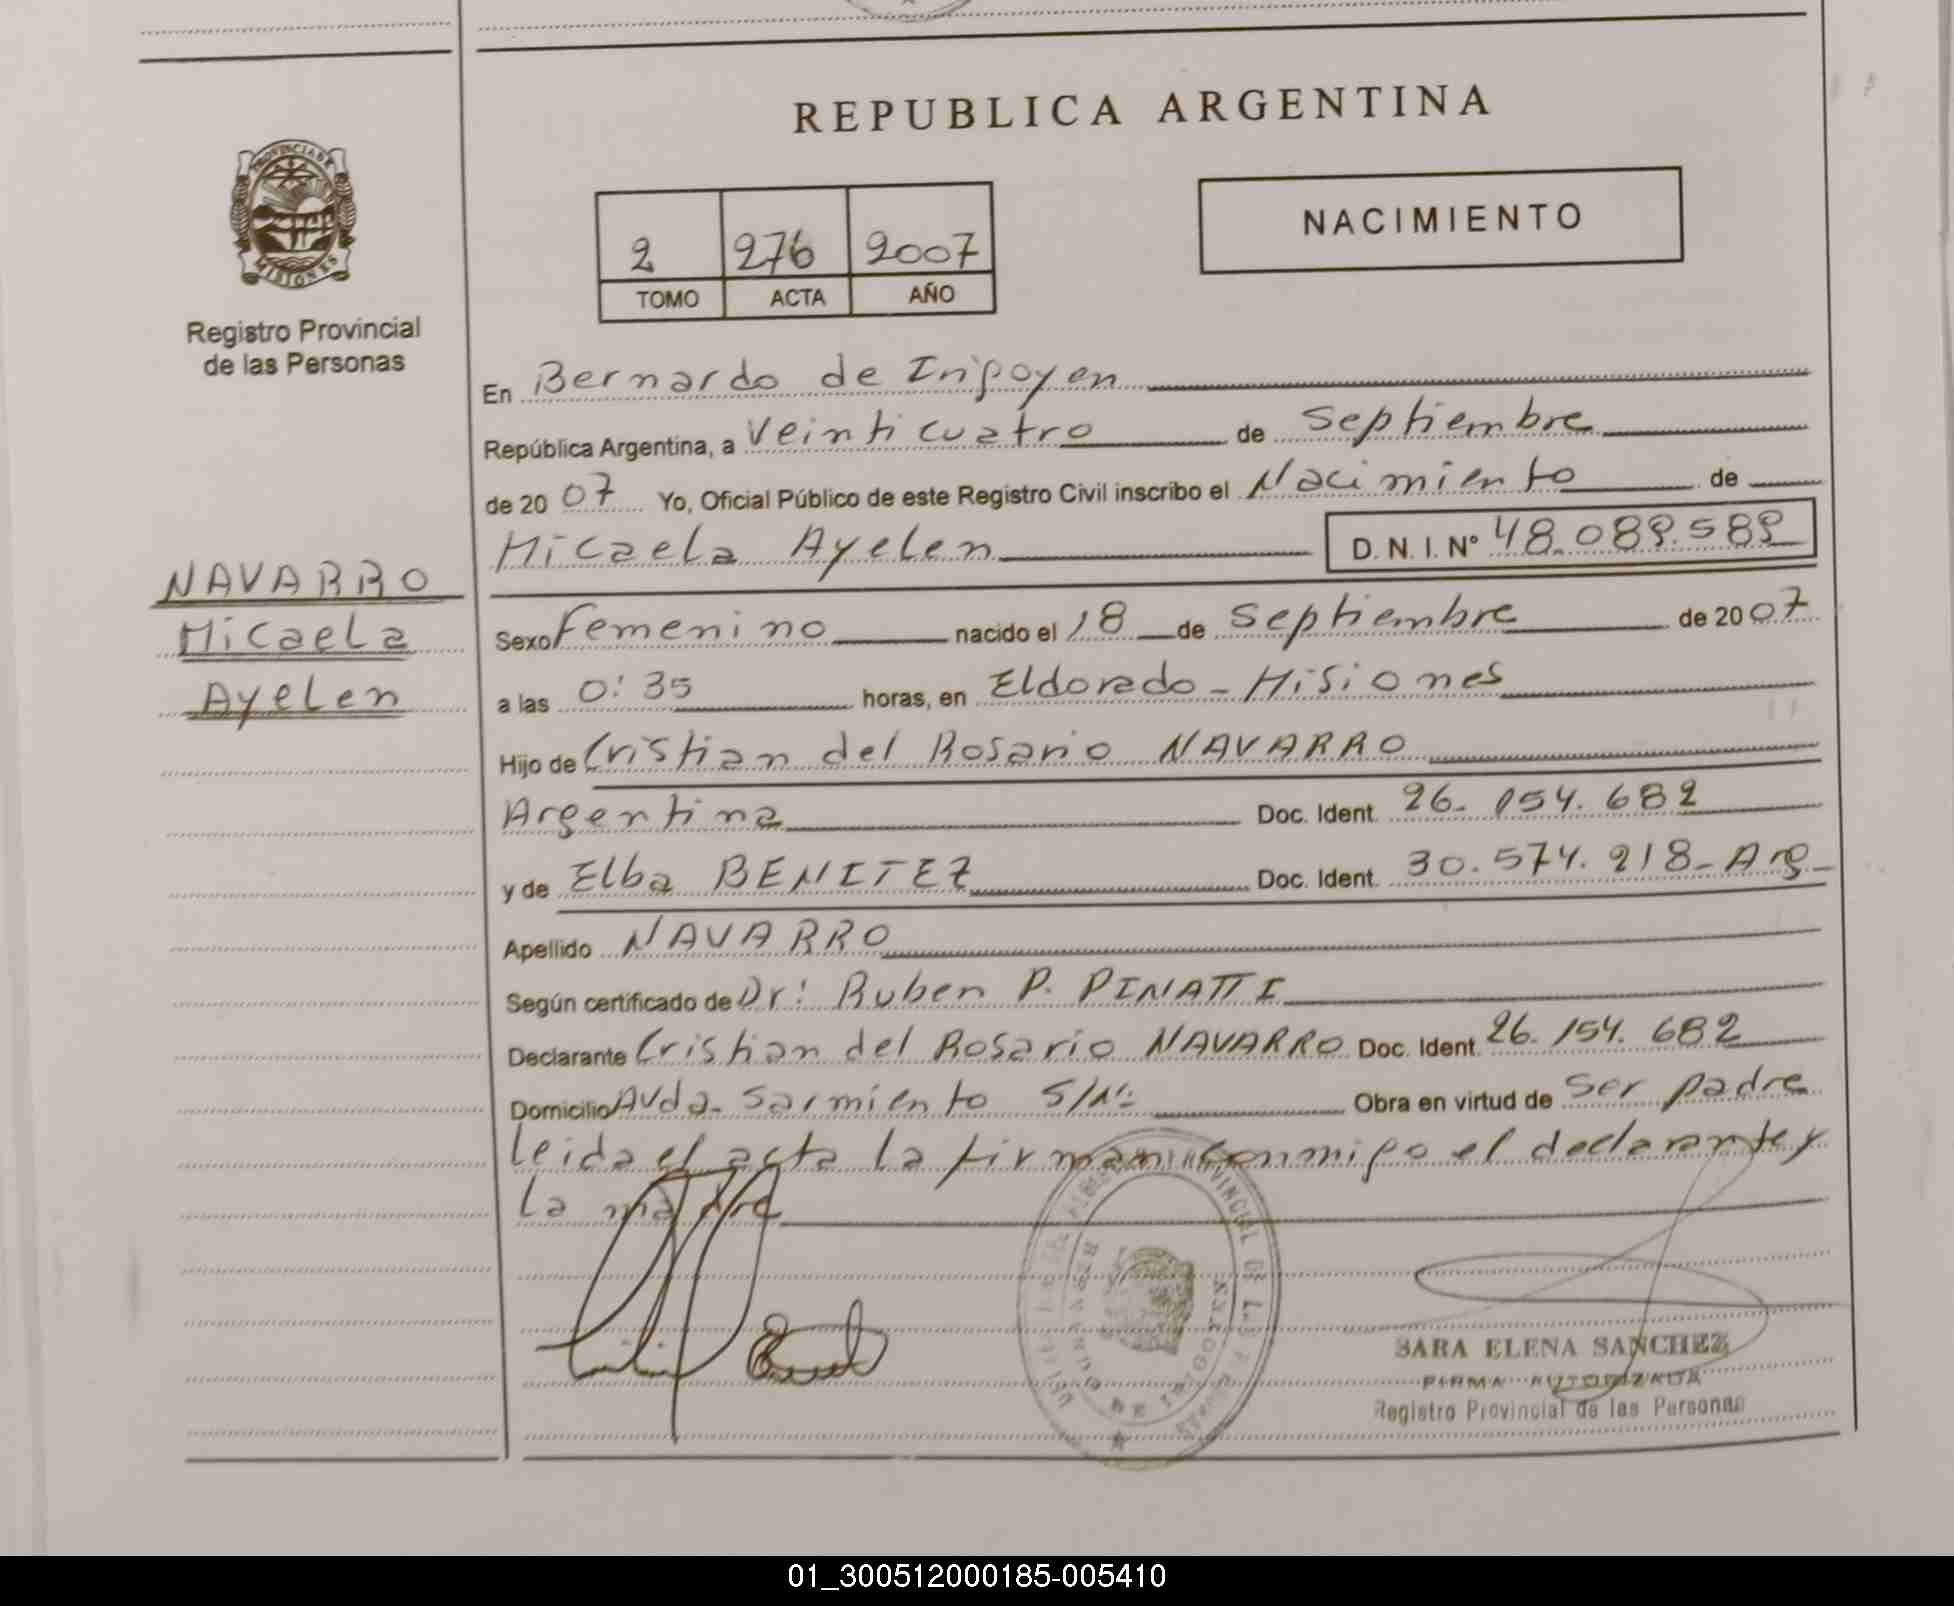 REPUBLICA ARGENTINA
PROVINCIA DE
MISIONES
Registro Provincial
de las Personas
2 276 2007
TOMO ACTA AÑO
NACIMIENTO
En Bernardo de Irigoyen
República Argentina, a Veinticuatro de Septiembre
de 2007 Yo, Oficial Público de este Registro Civil inscribo el Nacimiento de
Micaela Ayelen D.N.I.Nº 48.089.589
NAVARRO
Micaela
Ayelen
Sexo Femenino nacido el 18 de Septiembre de 2007
a las 0:35 horas, en Eldorado - Misiones
Hijo de Cristian del Rosario NAVARRO
Argentina Doc. Ident. 26.154.682
y de Elba BENITEZ Doc. Ident. 30.574.218 - Arg -
Apellido NAVARRO
Según certificado de Dr: Ruben P. PINATTI
Declarante Cristian del Rosario NAVARRO Doc. Ident. 26.154.682
Domicilio Avda. Sarmiento S/Nº Obra en virtud de Ser padre
Leida el acta la firman conmigo el declarante y
la madre
SARA ELENA SANCHEZ
FIRMA AUTORIZADA
Registro Provincial de las Personas
01_300512000185-005410